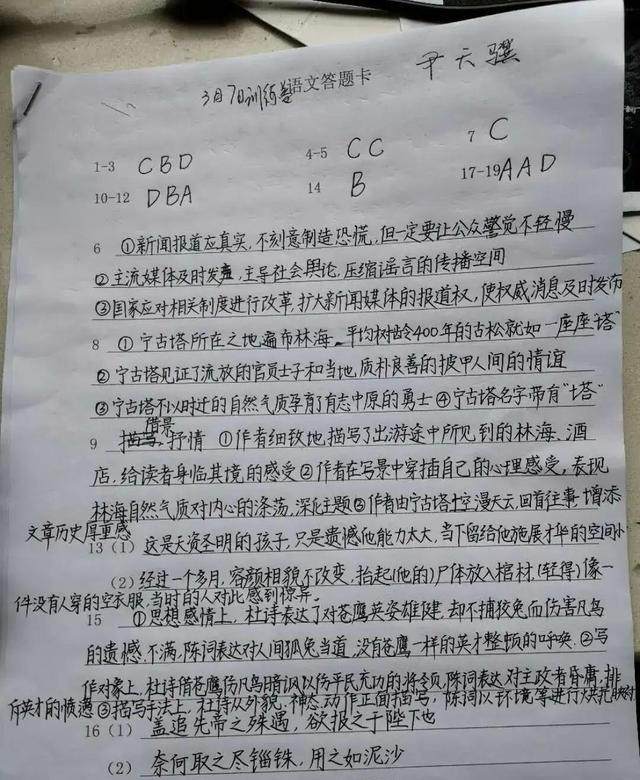 3月7日训练卷语文答题卡 尹天骥
1-3 CBD 4-5 CC 7 C
10-12 DBA 14 B 17-19 AAD
6 ①新闻报道应真实,不刻意制造恐慌,但一定要让公众警觉不轻慢
②主流媒体及时发声,主导社会舆论,压缩谣言的传播空间
③国家应对相关制度进行改革,扩大新闻媒体的报道权,使权威消息及时发布
8 ①宁古塔所在之地遍布林海,平均树龄400年的古松就如一座座"塔"
②宁古塔见证了流放的官员士子和当地,质朴良善的披甲人间的情谊
③宁古塔不以时迁的自然气质孕育了有志中原的勇士④宁古塔名字带有"塔"
借景
9 描写,抒情 ①作者细致地描写了出游途中所见到的林海、酒
店,给读者身临其境的感受②作者在写景中穿插自己的心理感受,表现
林海自然气质对内心的涤荡,深化主题③作者由宁古塔 漫天云,回首往事,增添
文章历史厚重感
13 (1) 这是天资圣明的孩子,只是遗憾他能力太大,当下留给他施展才华的空间小
(2) 经过一个多月,容颜相貌不改变,抬起(他的)尸体放入棺材,(轻得)像一
件没有人穿的空衣服,当时的人对此感到惊异。
15 ①思想感情上,杜诗表达了对苍鹰英姿雄健,却不捕狡兔而伤害凡鸟
的遗憾、不满,陈词表达对人间狐兔当道,没有苍鹰一样的英才整顿的呼唤.②写
作对象上,杜诗借苍鹰伤凡鸟暗讽以伤平民充功的将领,陈词表达对主政者昏庸,排
斥英才的愤懑③描写手法上,杜诗从外貌、神态、动作正面描写,陈词以环境等进行烘托
16 (1) 盖追先帝之殊遇,欲报之于陛下也
(2) 奈何取之尽锱铢,用之如泥沙